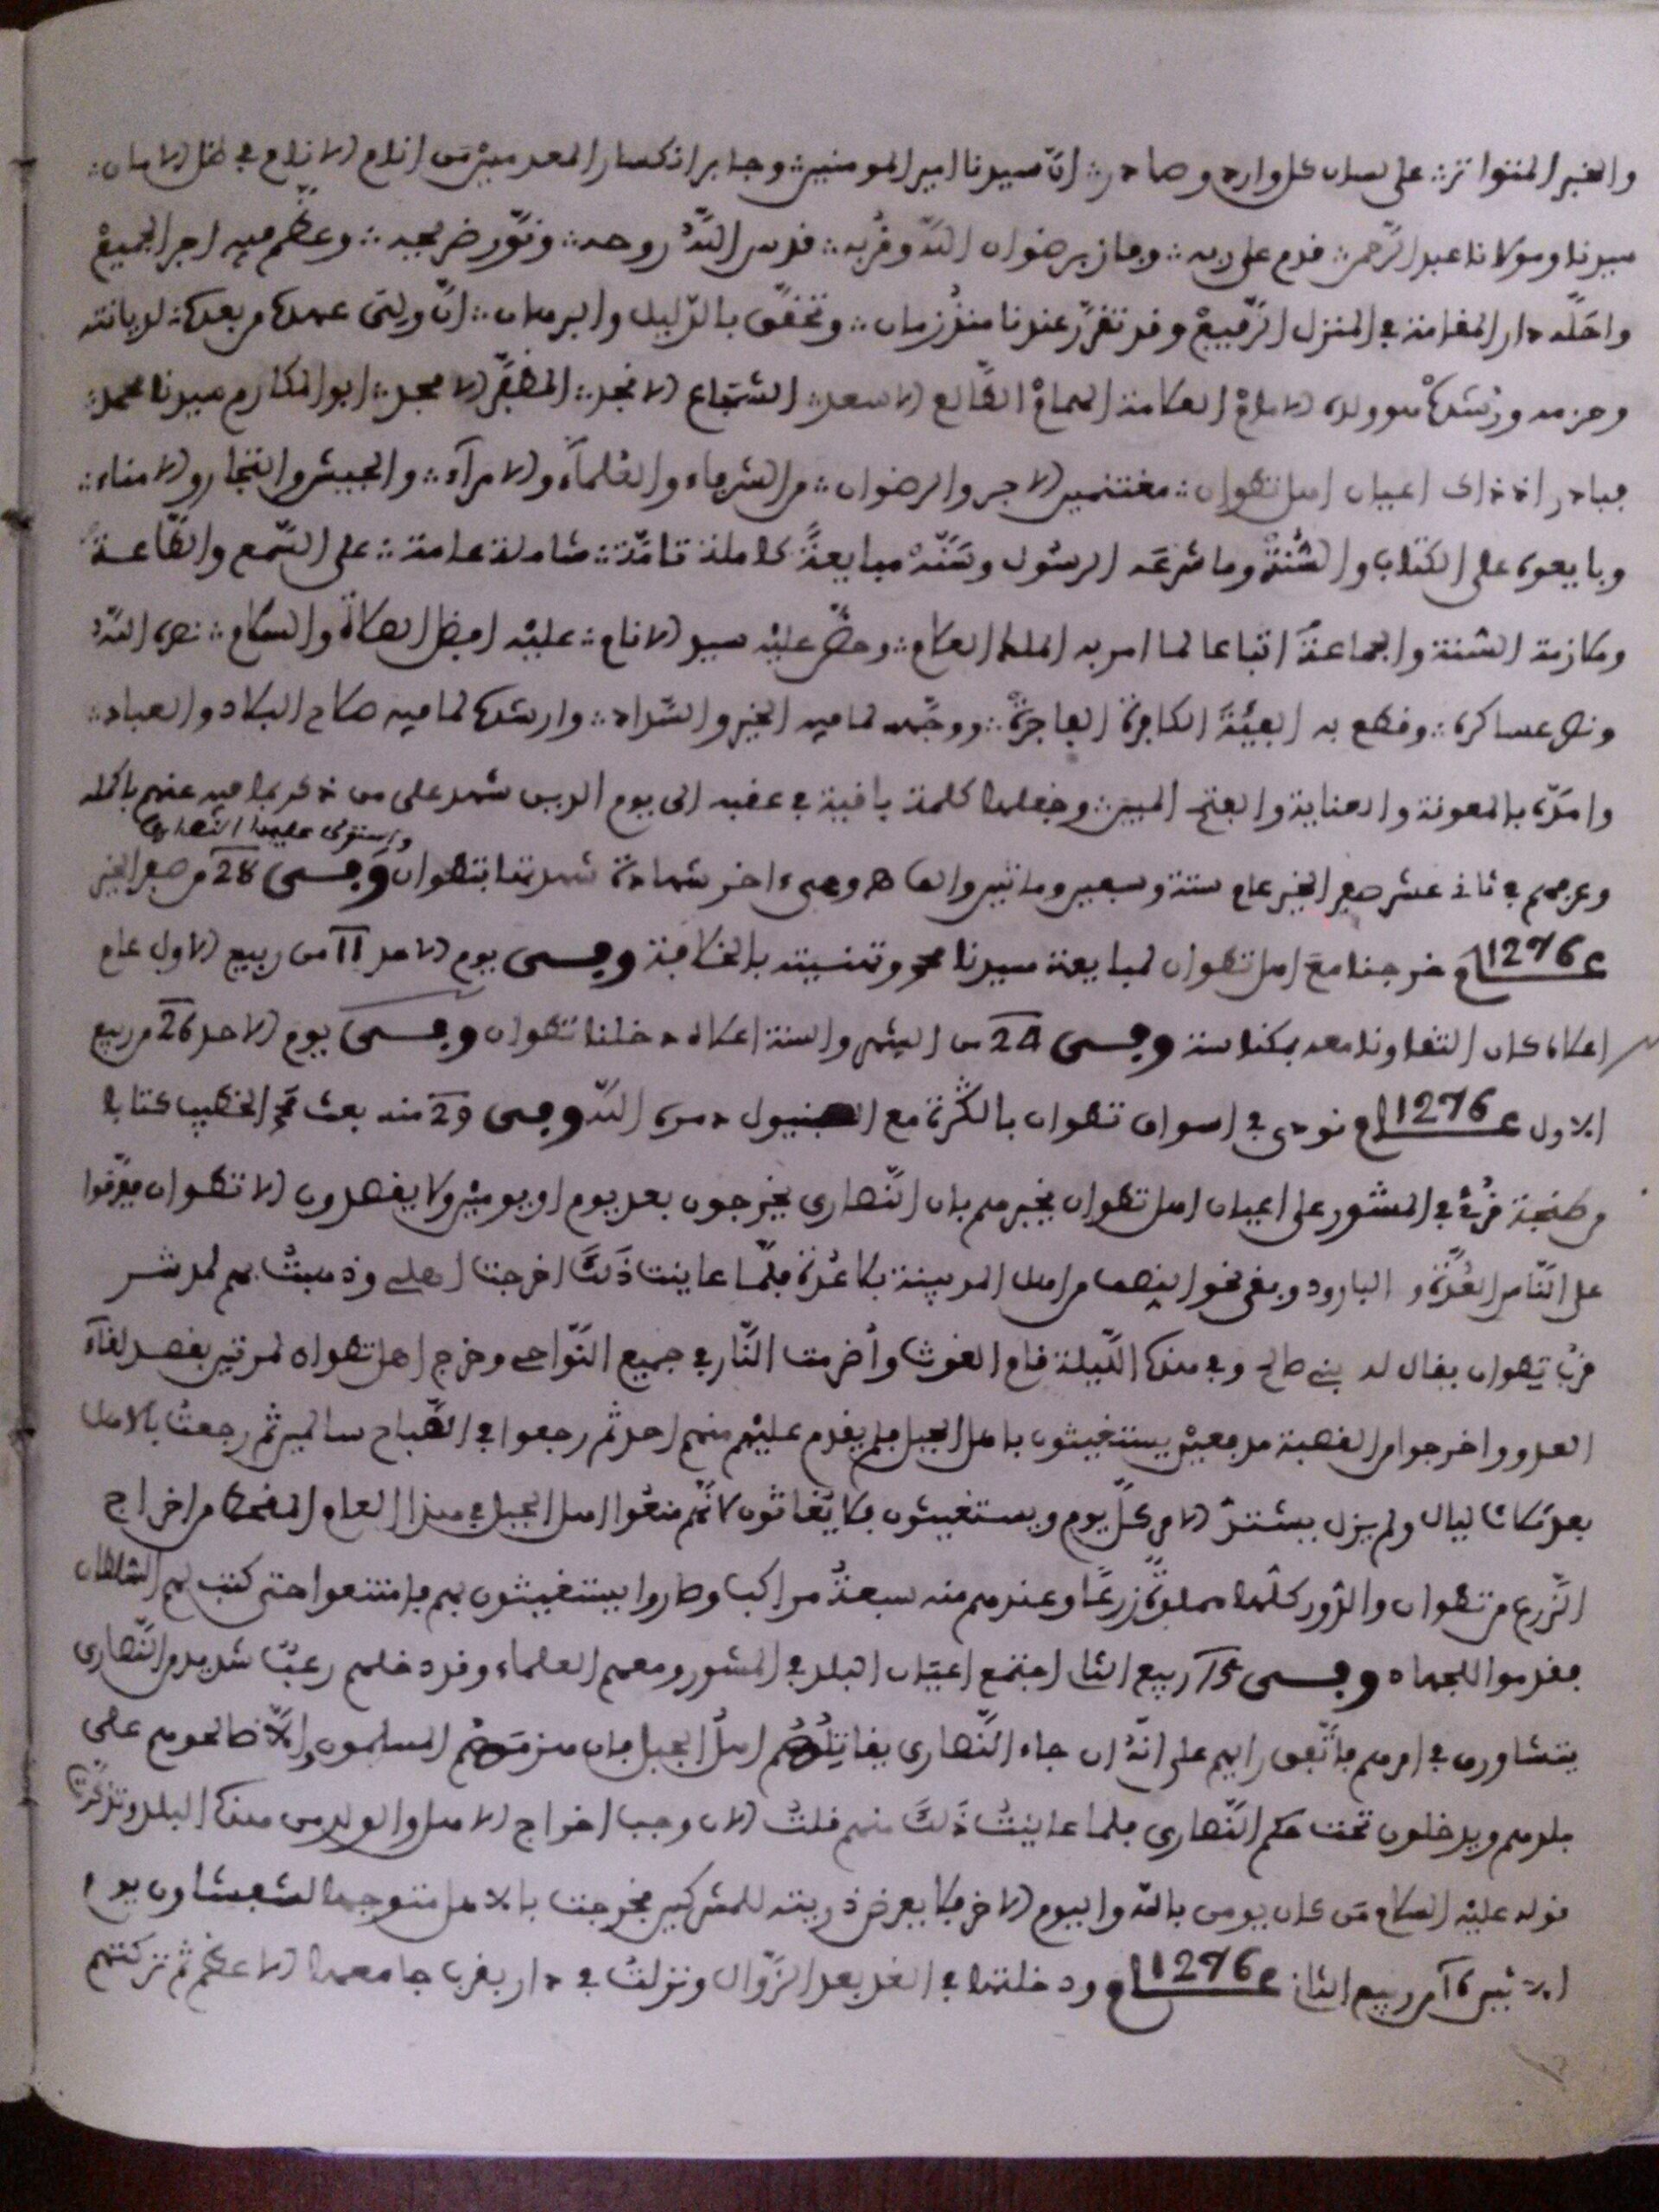 والخبر المتواتر؞ على لسان كل وارد وصادر؞ ان سيدنا امير المومنين؞ وجابر انكسار المعدمين من انام الانام في ظل الامان؞
سيدنا ومولانا عبد الرحمن؞ قدم على ربه؞ وفاز برضوان الله وقربه؞ قدس الله روحه؞ ونور ضريحه؞ وعظم فيه اجر الجميع
واحله دار المقامة في المنزل الرفيع وقد تقرر عندنا منذ زمان؞ وتحقق بالدليل والبرهان؞ ان ولي عهده من بعده لديانته
وحزمه ورشده هو ولده الاملغ العلامة الهمام الطالع الاسعد؞ الشجاع الانجد؞ المظفر الامجد؞ ابو المكارم سيدنا محمد؞
فبادر اذ ذاك اعيان اهل تطوان؞ مغتنمين الاجر والرضوان؞ من الشرفاء والعلماء والامراء؞ والجيش والتجار والامناء؞
وبايعوه على الكتاب والسنة وما شرعه الرسول وسنه مبايعة كاملة تامة؞ شاملة عامة؞ على السمع والطاعة
وملازمة السنة والجماعة اتباعا لما امر به الملك العلام؞ وحض عليه سيد الانام؞ عليه افضل الصلاة والسلام؞ نصره الله
ونصر عساكره؞ وقطع به الفئة الكافرة الفاجرة؞ ووجهه لما فيه الخير والسداد؞ وارشده لما فيه صلاح البلاد والعباد؞
وامده بالمعونة والعناية والفتح المبين؞ وجعلها كلمة باقية في عقبه الى يوم الدين شهد على من ذكر بما فيه عنهم باكمله
واستولى عليها النصارى
وعرفهم في ثاني عشر صفر الخير عام ستة وسبعين ومائتين والف اه وهيء اخر شهادة شهدتها بتطوان وفى 28 من صفر الخير
ع 1276م خرجنا مع اهل تطوان لمبايعة سيدنا محمد وتهنيته بالخلافة وفى يوم الاحد 11 من ربيع الاول عام
اعلاه كان التقاونا معه بمكناسة وفى 24 من الشهر والسنة اعلاه دخلنا تطوان وفى يوم الاحد 26 من ربيع
الاول ع 1276م نودي في اسواق تطوان بالكرة مع الصبنيول دمره الله وفى 29 منه بعث محمد الخطيب كتابا
من طنجة قرئ في المشور على اعيان اهل تطوان يخبرهم بان النصارى يخرجون بعد يوم او يومين ولا يقصدون الا تطوان ففرقوا
على الناس العدة والبارود وبقي نحو النصف من اهل المدينة بلا عدة فلما عاينت ذلك اخرجت اهلي وذهبت بهم لمدشر
قرب تطوان يقال له بني صالح وفي هذه الليلة قام الغوث واضرمت النار في جميع النواحي وخرج اهل تطوان لمرتين بقصد لقاء
العدو واخرجوا من القصبة مدفعين يستغيثون باهل الجبل فلم يقدم عليهم منهم احد ثم رجعوا في الصباح سالمين ثم رجعت بالاهل
بعد ثلاث ليال ولم يزل يشتد الامر كل يوم ويستغيثون فلا يغاثون لانهم منعوا اهل الجبل في هذا العام من اخراج
الزرع من تطوان والدور كلها مملوة زرعا وعندهم منه سبعة مراكب وصاروا يستغيثون بهم فامتنعوا حتى كتب لهم السلطان
فقدموا للجهاد وفى ربيع الثاني اجتمع اعيان البلد في المشور ومعهم العلماء وقد دخلهم رعب شديد من النصارى
يتشاورون في امرهم فاتفق رايهم على انه ان جاء النصارى يقاتلوهم اهل الجبل فان هزموهم المسلمون والا صالحوهم على
بلدهم ويدخلون تحت حكم النصارى فلما عاينت ذلك منهم قلت الان وجب اخراج الاهل والولد من هذه البلد وتذكرت
قوله عليه السلام من كان يومن بالله واليوم الاخر فلا يعرض ذريته للمشركين فخرجت بالاهل متوجها لشفشاون يوم
الاثنين من ربيع الثاني ع 1276م ودخلتها في الغد بعد الزوال ونزلت في دار بقرب جامعها الاعظم ثم تركتهم